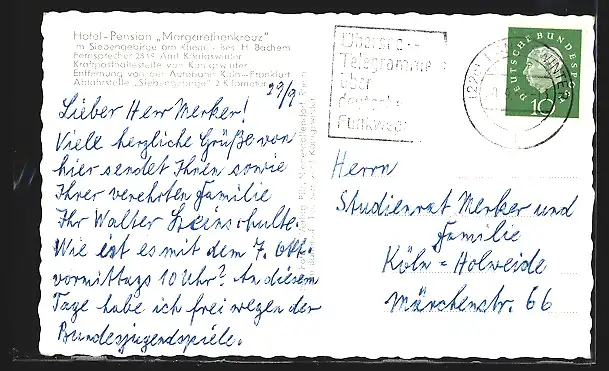 Hotel-Pension „Margarethenkreuz"
im Siebengebirge am Rhein · Bes. H. Bachem
Fernsprecher 2819 Amt Königswinter
Kraftposthaltestelle von Königswinter
Entfernung von der Autobahn Köln-Frankfurt
Abfahrtstelle „Siebengebirge" 2 Kilometer
29/9
Lieber Herr Merker!
Viele herzliche Grüße von
hier sendet Ihnen sowie
Ihrer verehrten Familie
Ihr Walter
Wie ist es mit dem 7. Okt.
vormittags 10 Uhr? An diesem
Tage habe ich frei wegen der
Bundesjugendspiele.
Telegramme
über
deutsche
Funkwege
DEUTSCHE BUNDESPOST
10
Herrn
Studienrat Merker und
Familie
Köln = Holweide
Märchenstr. 66